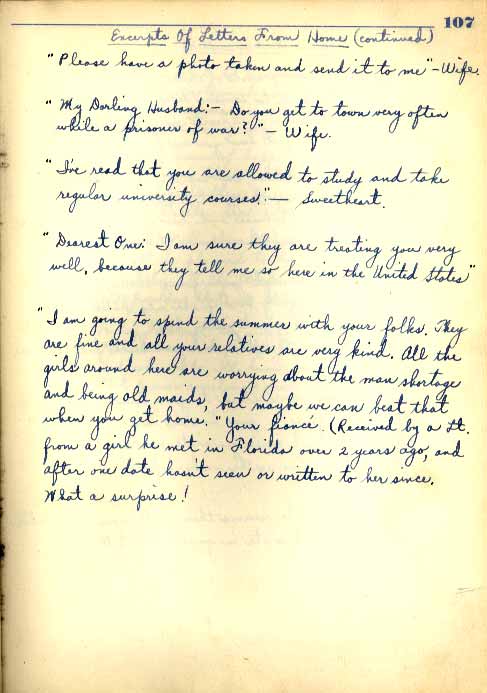 107
Excerpts Of Letters From Home (continued)
"Please have a photo taken and send it to me"-Wife.
"My Darling Husband:- Do you get to town very often
while a prisoner of war?"- Wife.
"I've read that you are allowed to study and take
regular university courses."- Sweetheart.
"Dearest One: I am sure they are treating you very
well, because they tell me so here in the United States"
"I am going to spend the summer with your folks. They
are fine and all your relatives are very kind. All the
girls around here are worrying about the man shortage
and being old maids, but maybe we can beat that
when you get home." Your fiancé. (Received by a Lt.
from a girl he met in Florida over 2 years ago, and
after one date hasn't seen or written to her since.
What a surprise!